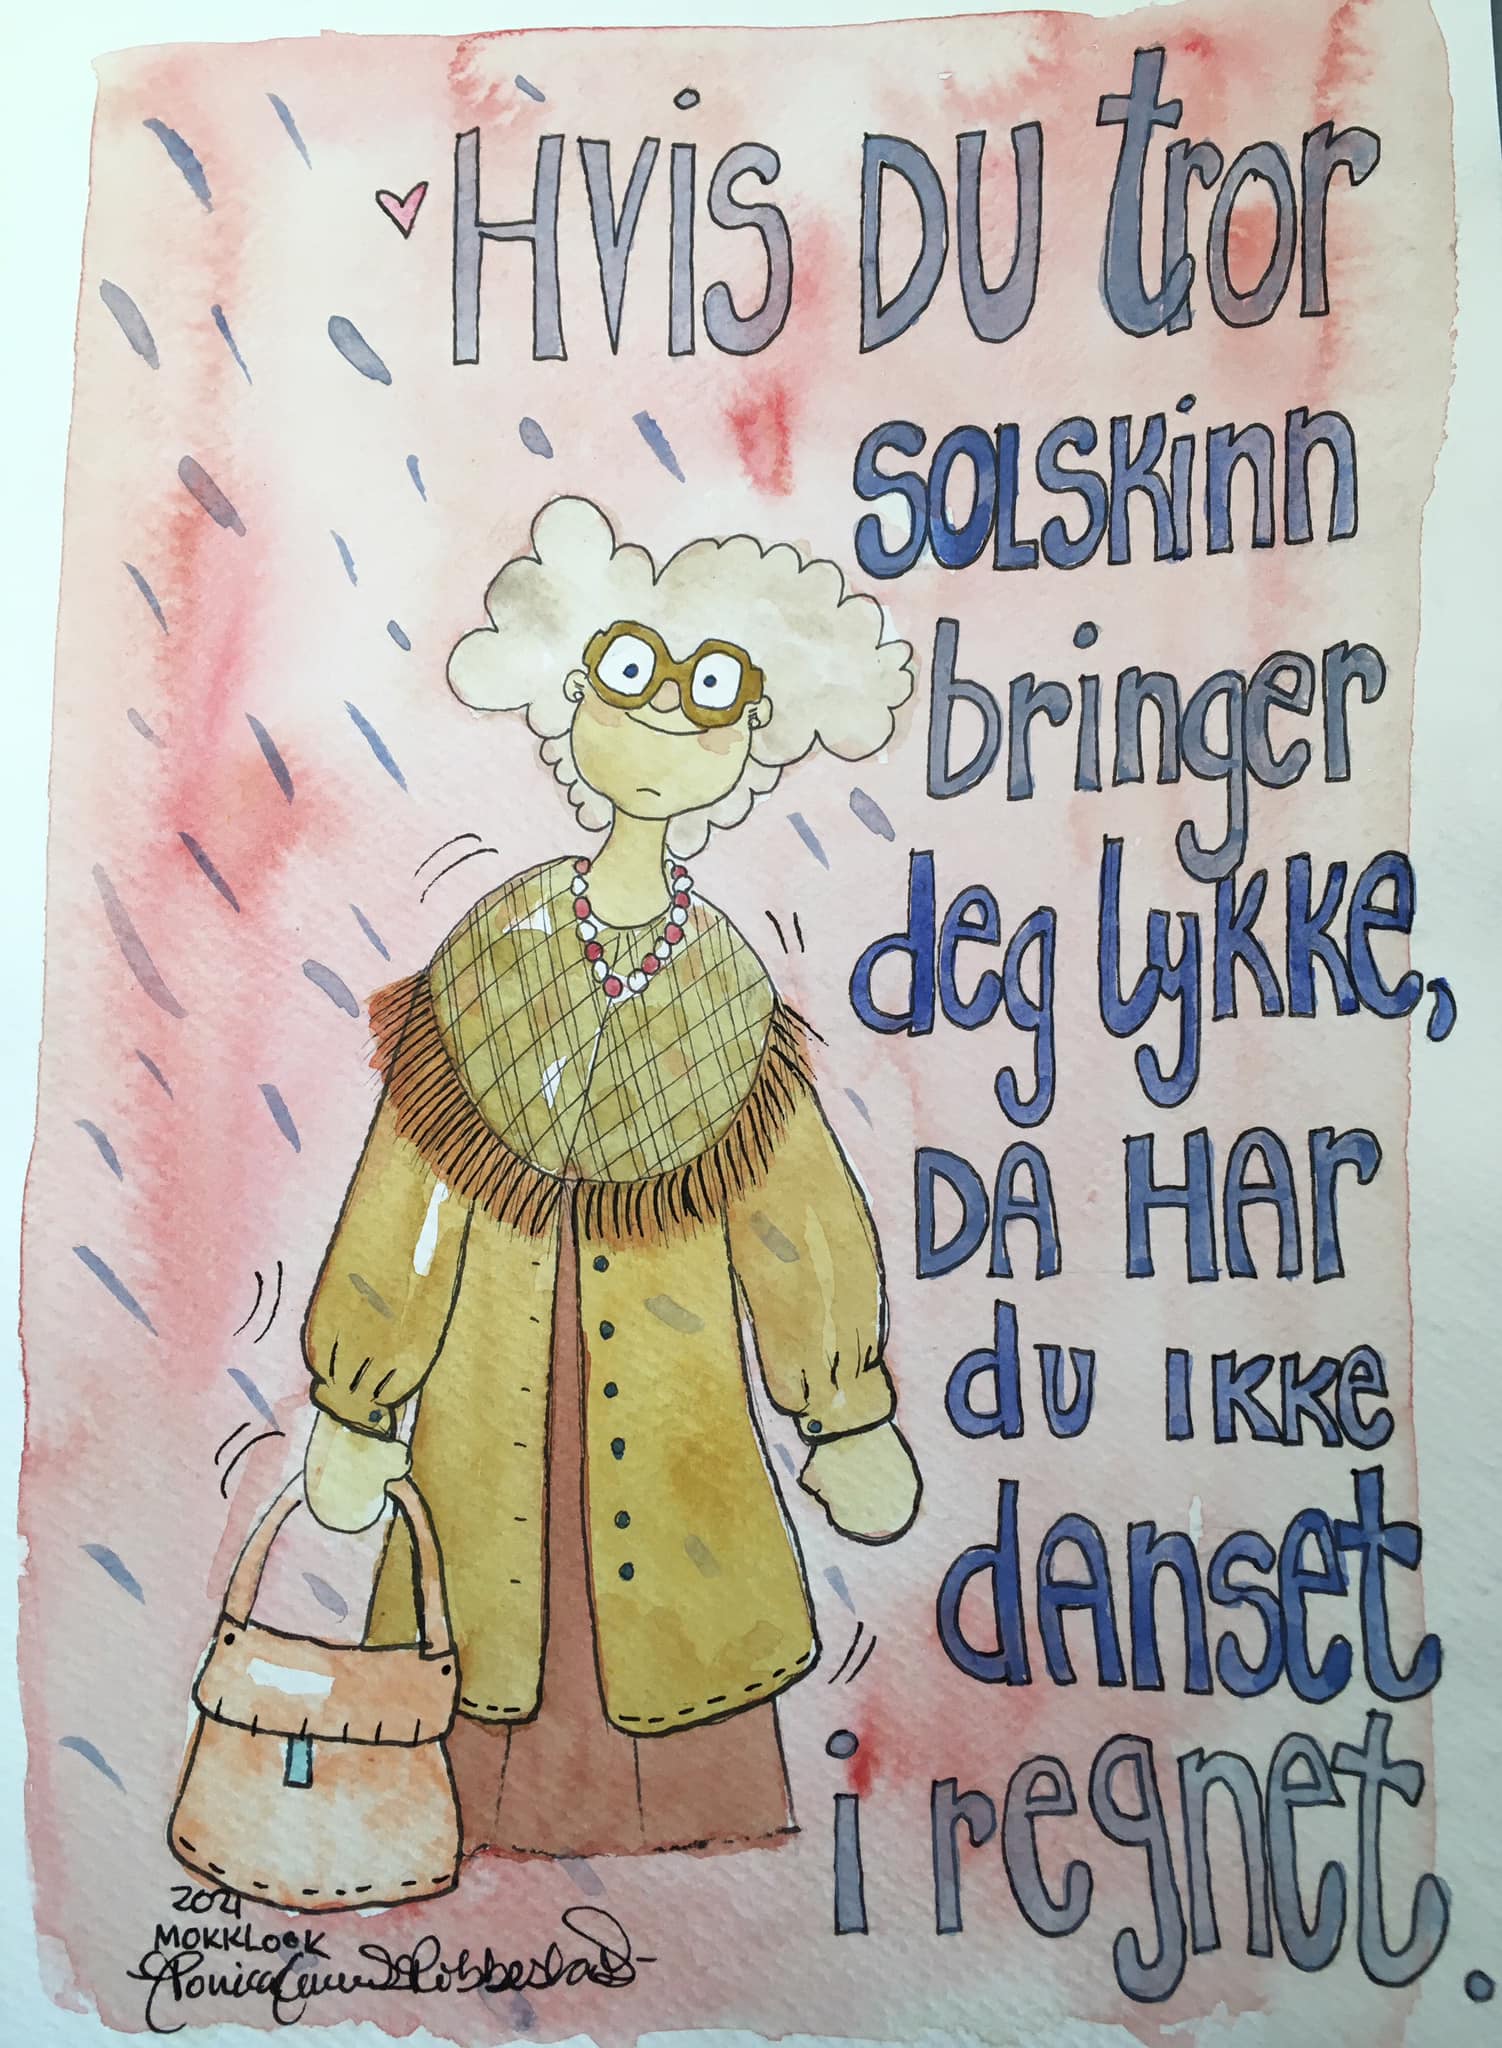 Hvis DU tror
SOLSKinn
bringer
deg lykke,
DA HAr
du IKKe
dAnset
i regnet.
2021
MOKKLOOK